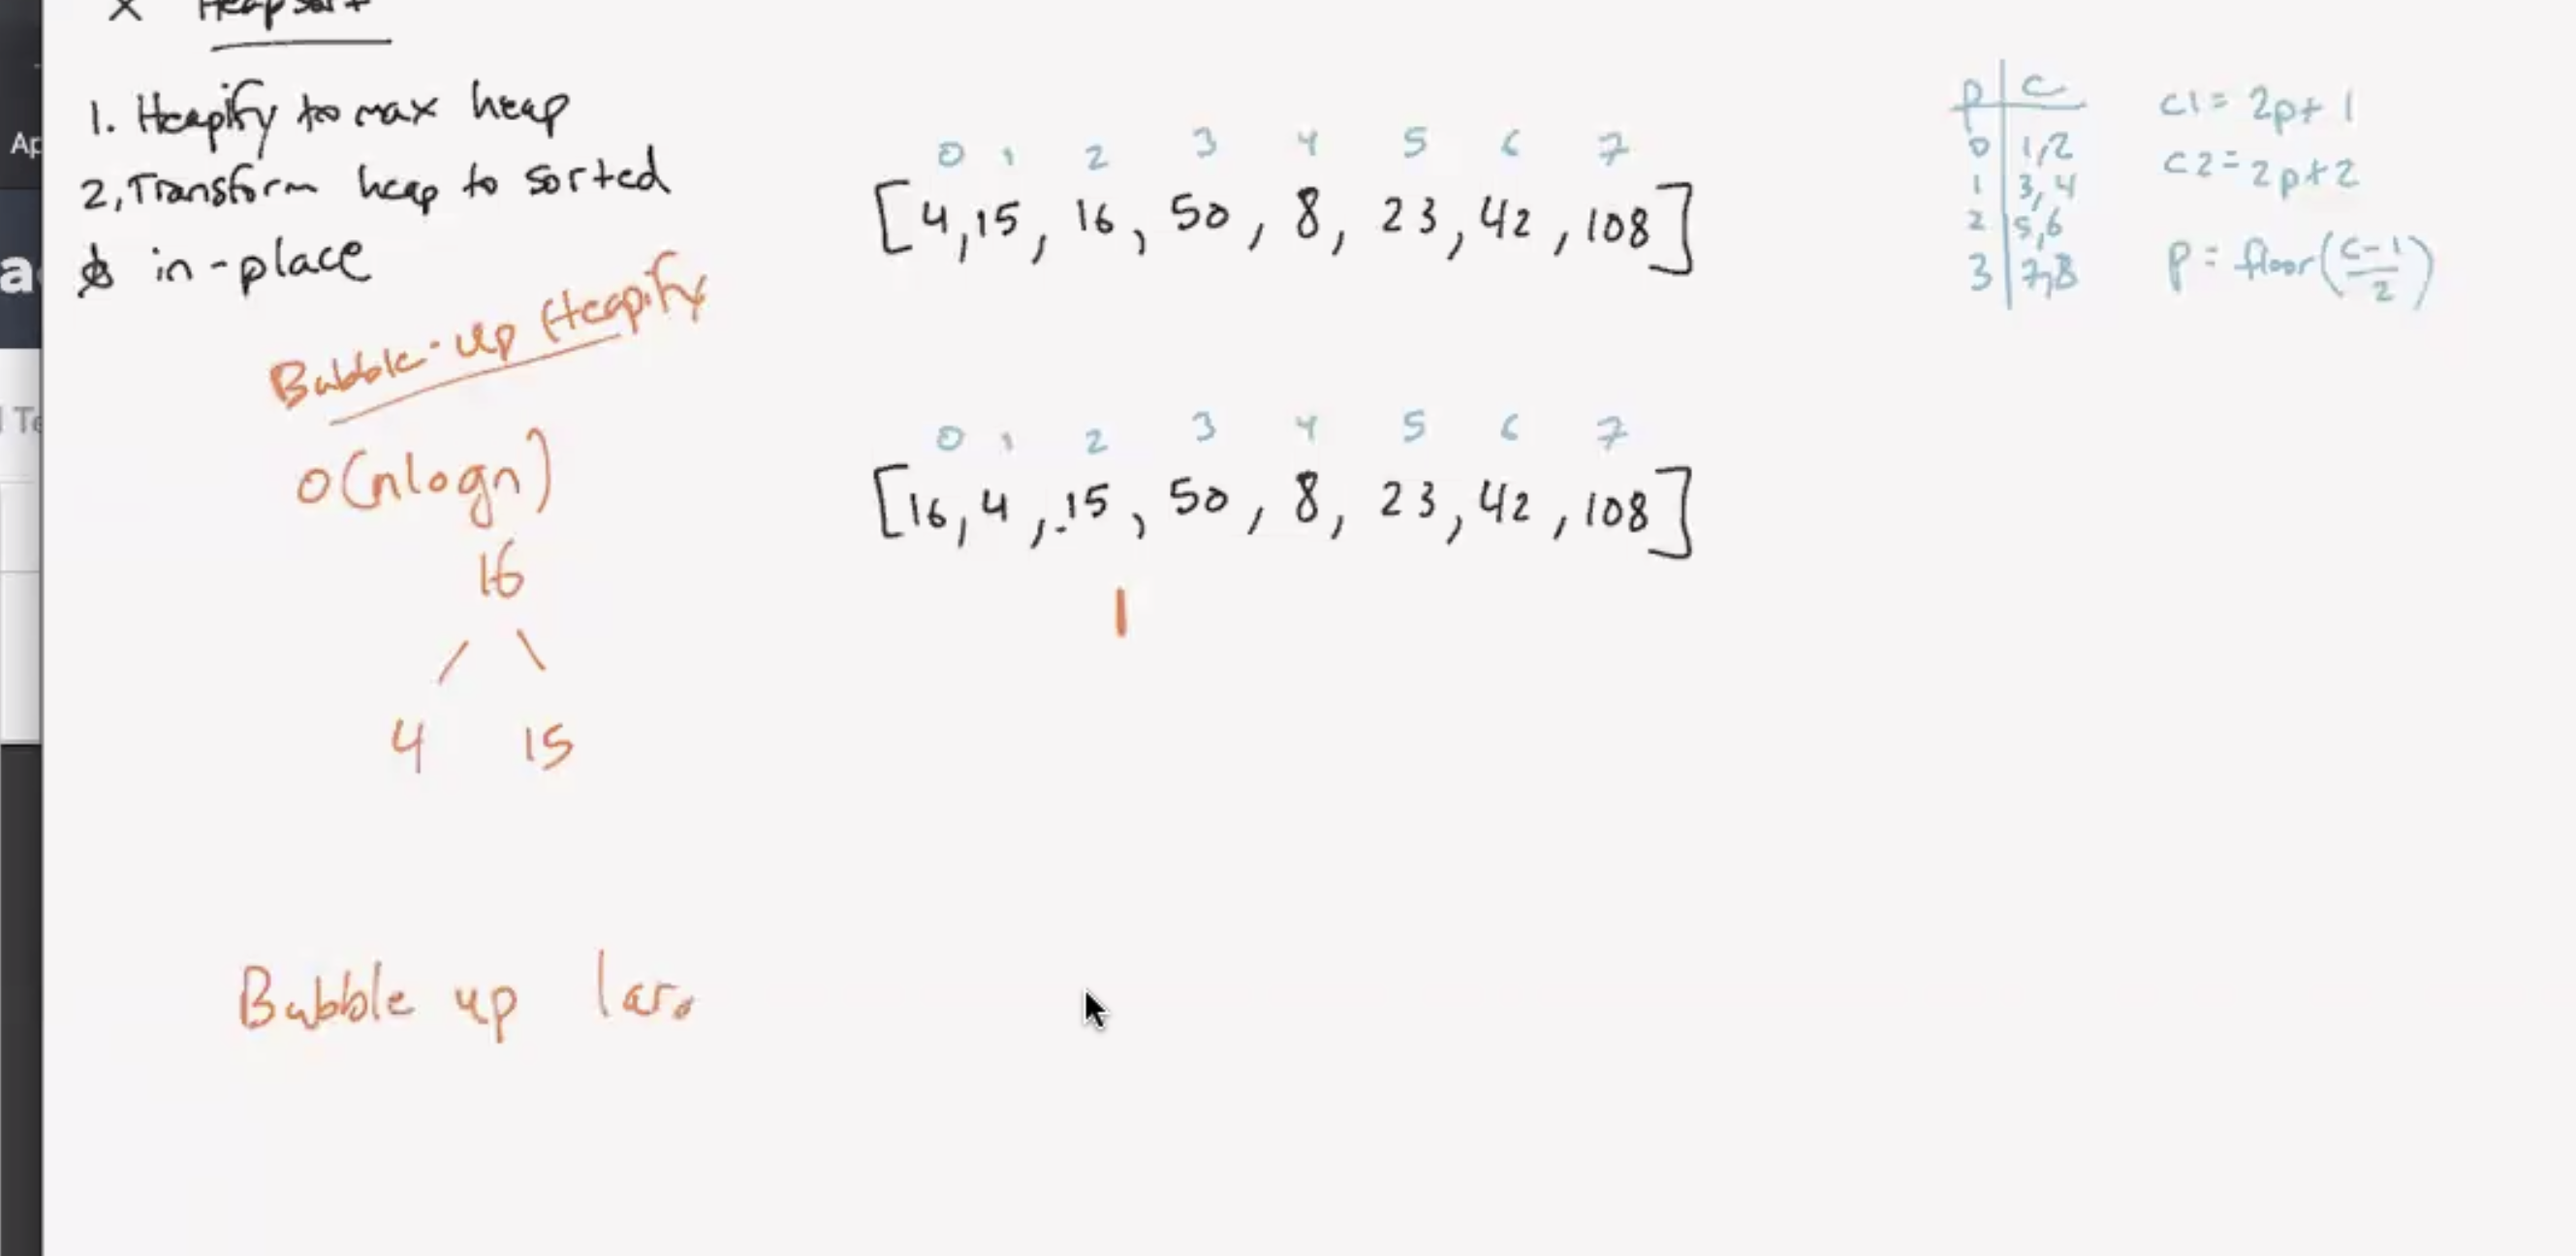 Heapsort
1. Heapify to max heap
2, Transform heap to sorted
in-place
Bubble-up Heapify
O(nlogn)
16
4 15
Bubble up
0 1 2 3 4 5 6 7
[4, 15, 16, 50, 8, 23, 42, 108]
0 1 2 3 4 5 6 7
[16, 4, 15, 50, 8, 23, 42, 108]
P C
0 1,2
1 3,4
2 5,6
3 7,8
c1 = 2p+1
c2 = 2p+2
p = floor(c-1/2)
Ap